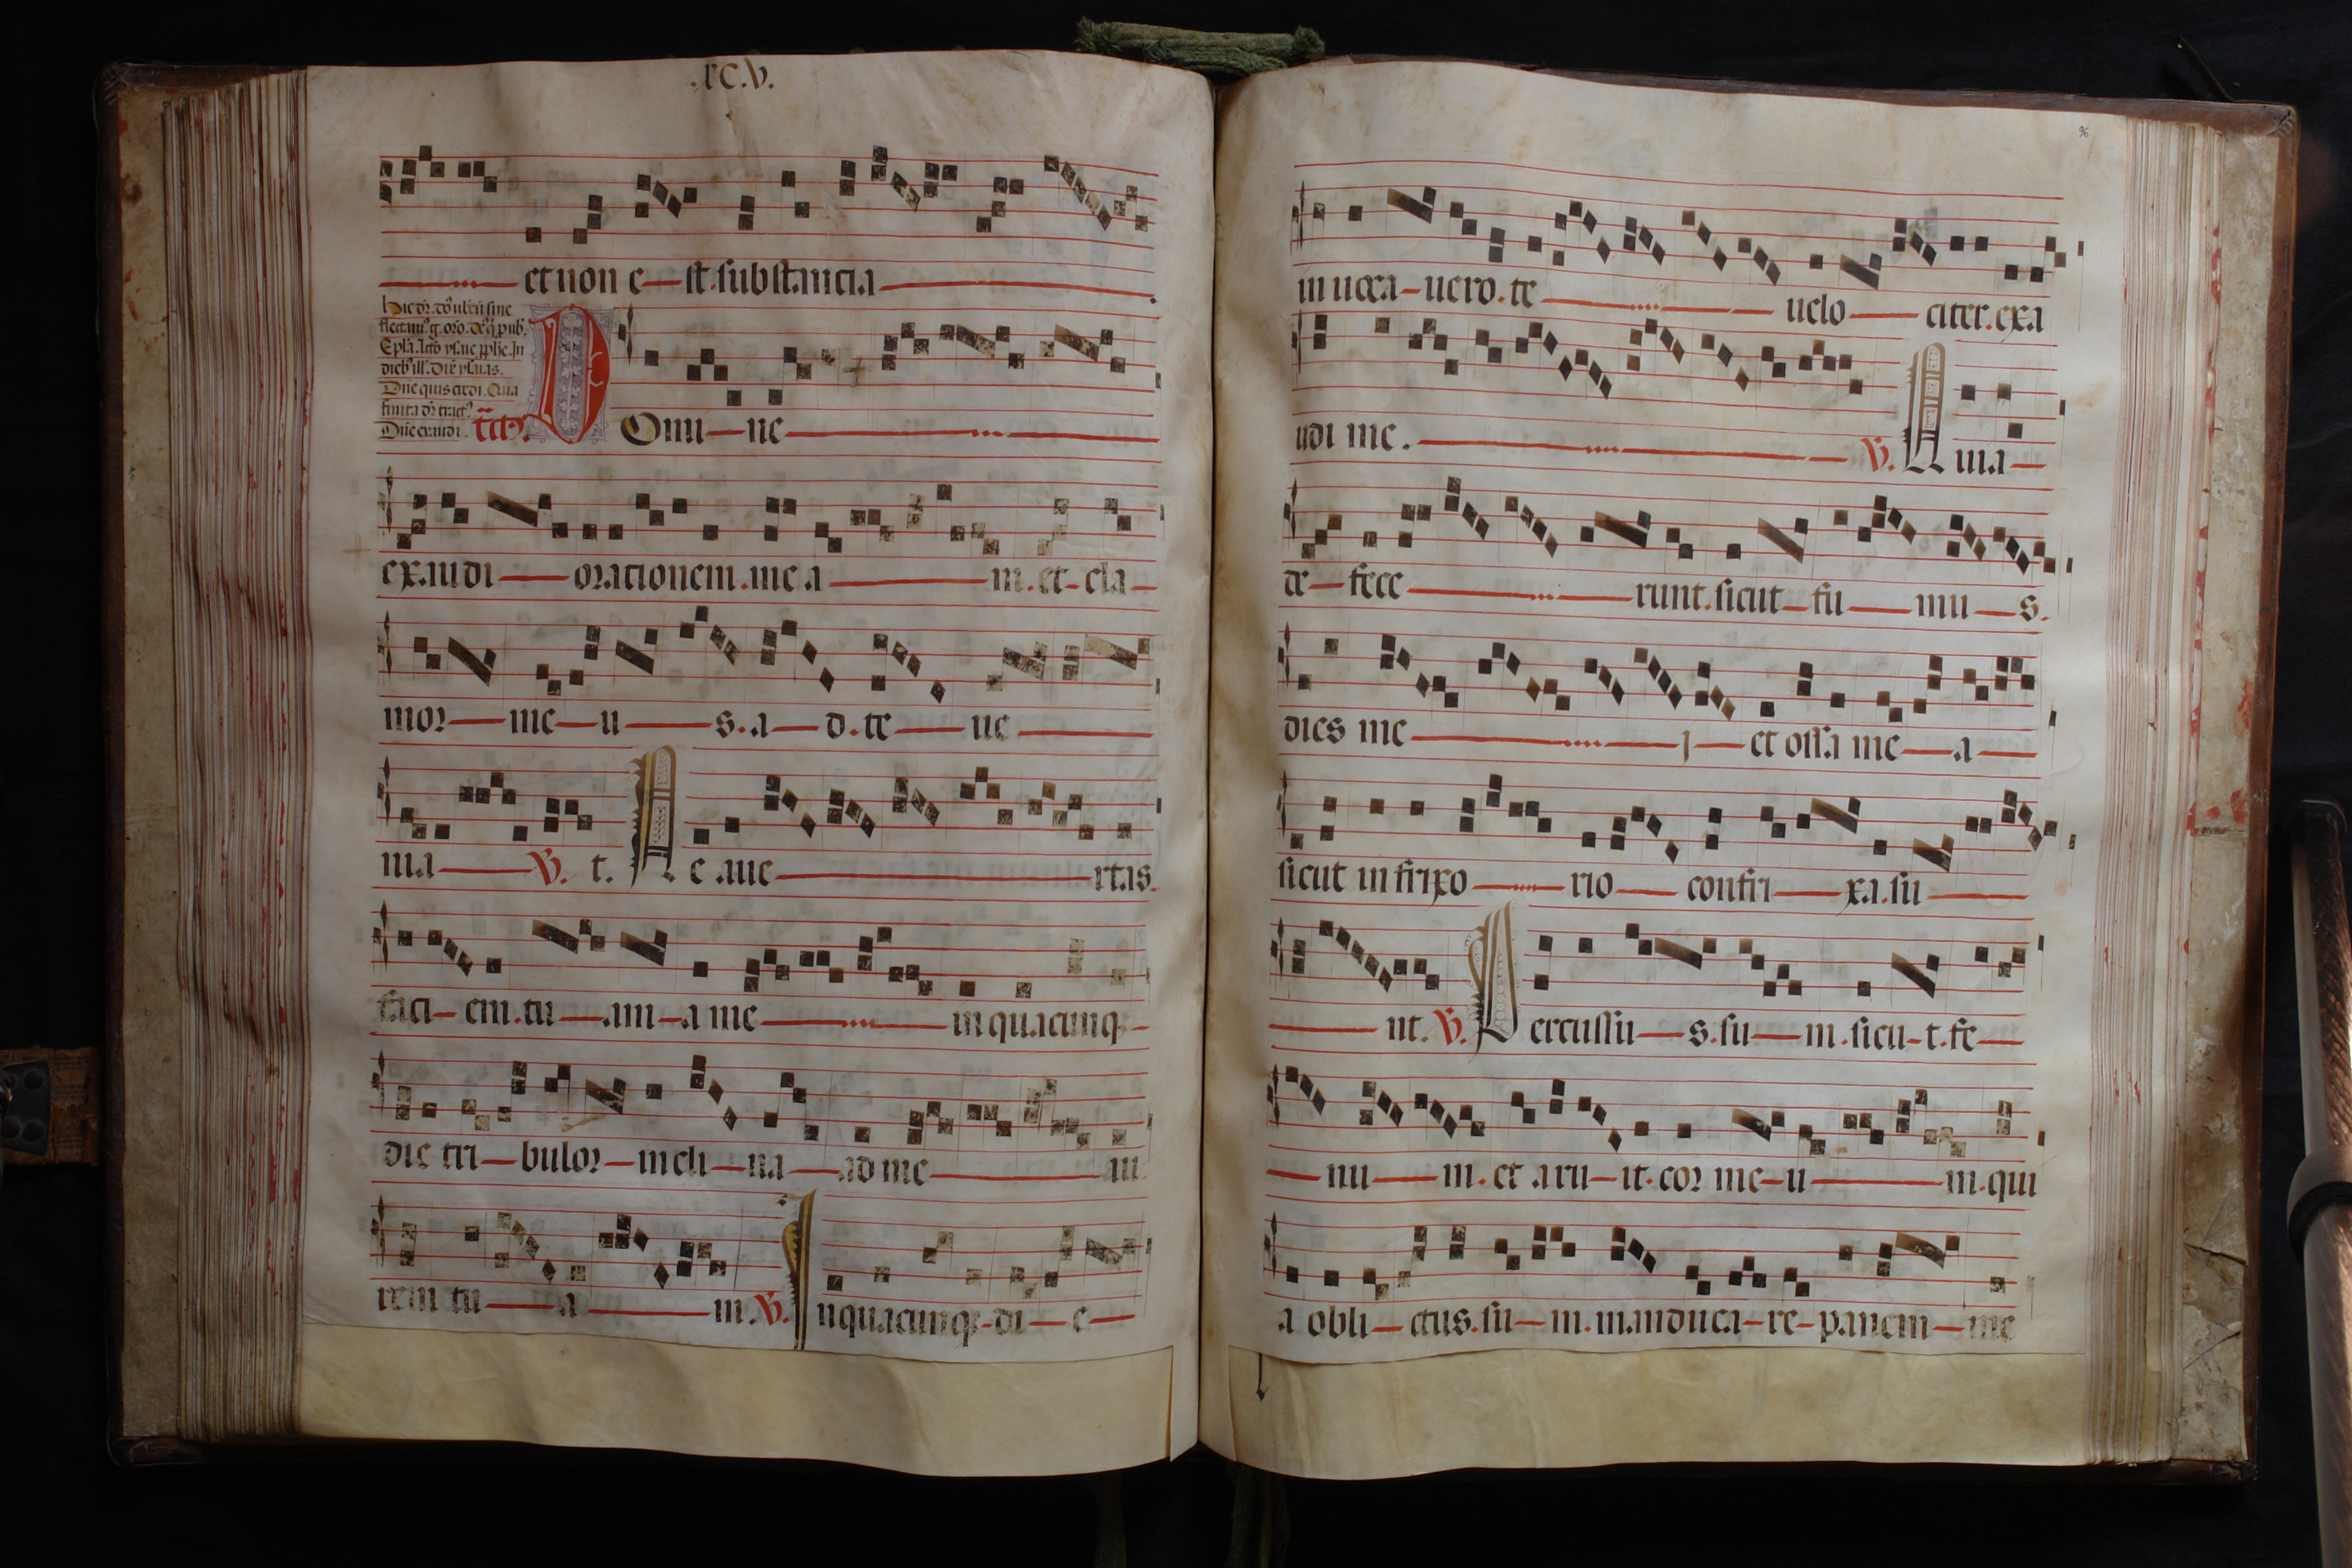 .xc.v.
et non e st. substancia
Epl'a. lcto ysaie pphe. In
dieb' ill'. Dix ysaias.
Dn̄e quis credi. Qua
finita dr̄ tract'
Dn̄e exaudi. tct9.
D Omi ne
exaudi orationem. mea m. et cla
mor me u s. a d. te ue
nia V. t. N e aue rtas.
faci em. tu am a me in quacumq
die tri bulor incli na ad me au
rem tu a m. V. In quacumq di e
96
in uoca uero. te uelo citer. exa
udi me. V. Quia
de fece runt. sicut fu mu s.
dies me i et ossa me a
sicut in frixo rio confri xa. su
nt. V. P ercussu s. su m. sicu t. fe
nu m. et aru it. cor me u m. qui
a obli ctus. su m. manduca re panem me